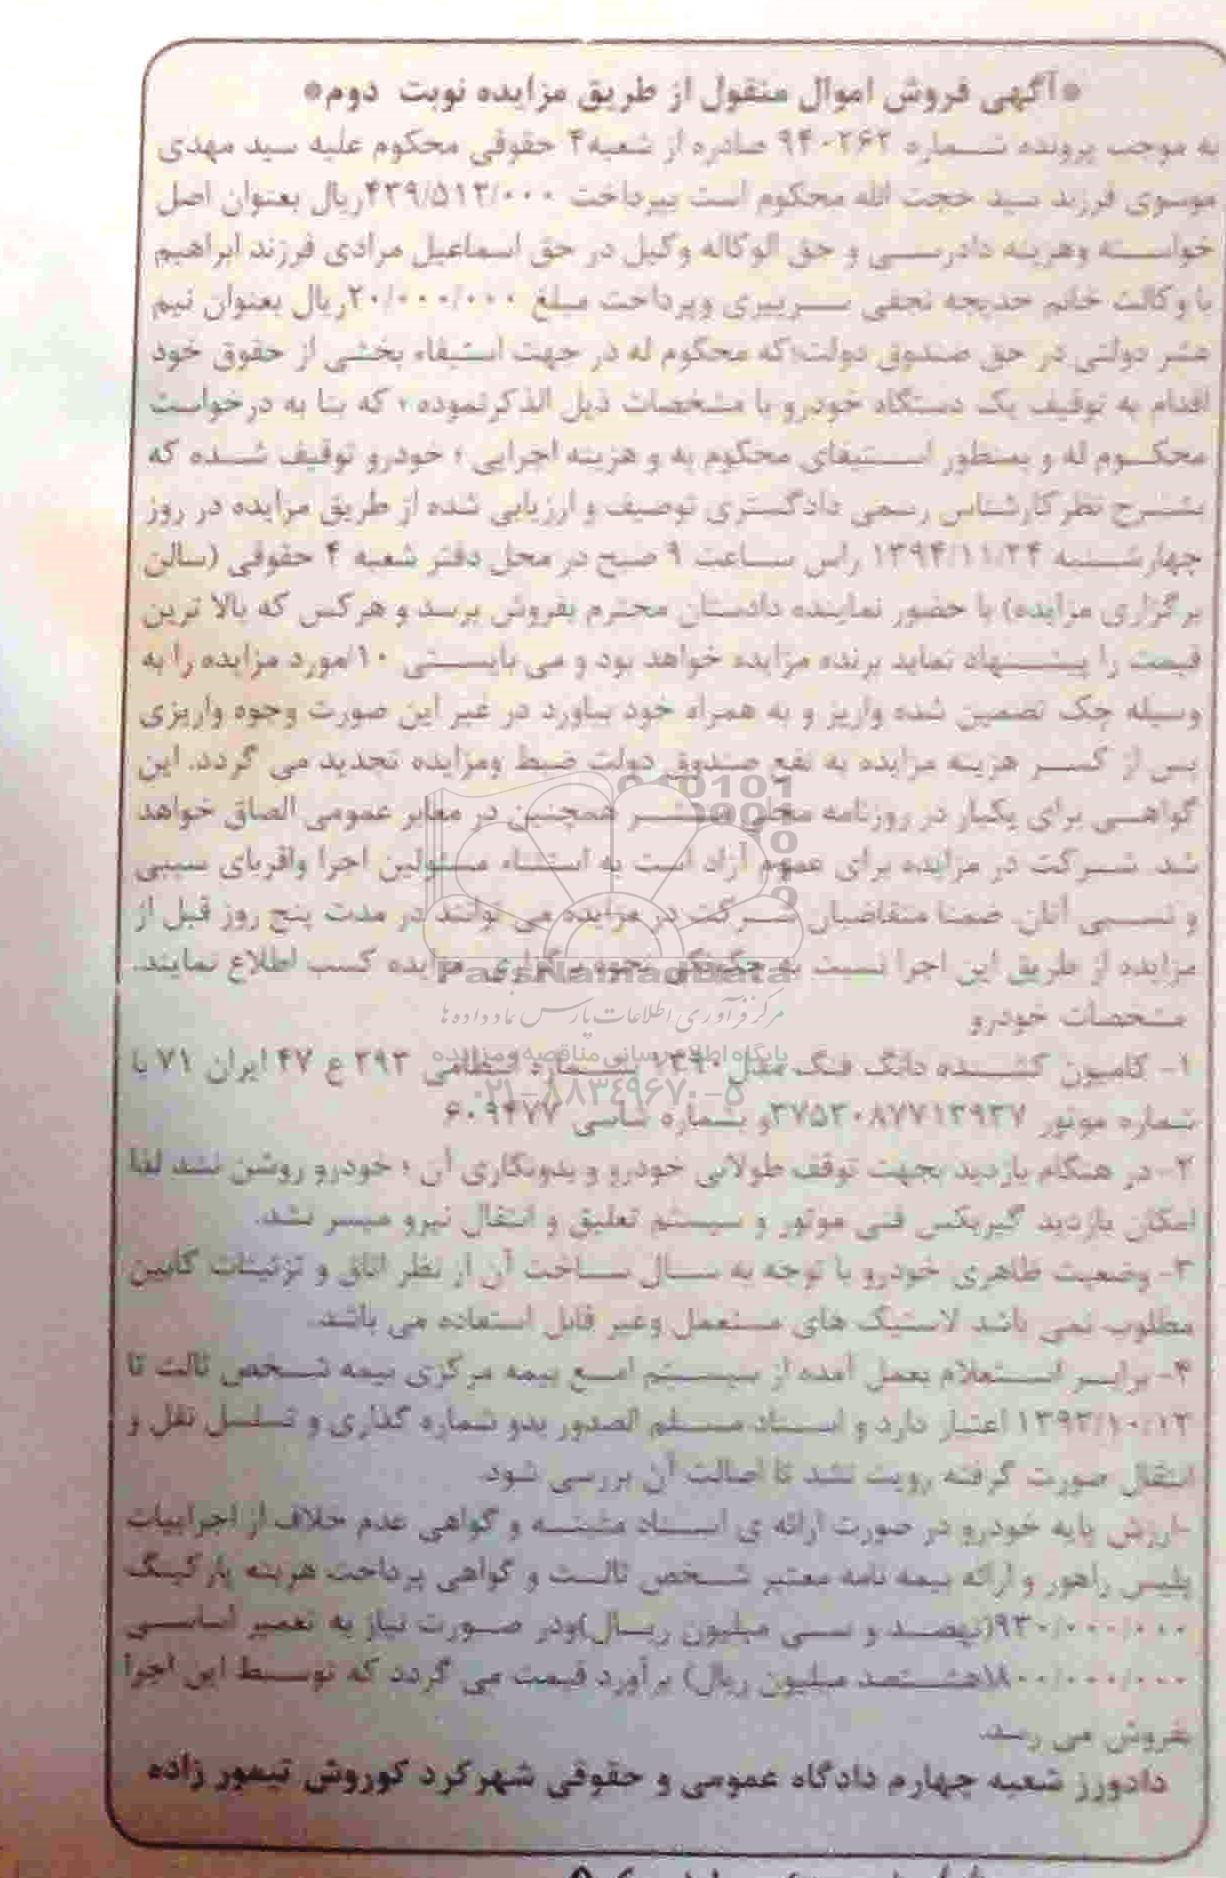 *آگهی فروش اموال منقول از طریق مزایده نوبت دوم*
به موجب پرونده شماره ۹۴۰۲۶۲ صادره از شعبه ۴ حقوقی محکوم علیه سید مهدی
موسوی فرزند سید حجت الله محکوم است بپرداخت ۴۳۹/۵۱۳/۰۰۰ریال بعنوان اصل
خواسته وهزینه دادرسی و حق الوکاله وکیل در حق اسماعیل مرادی فرزند ابراهیم
با وکالت خانم خدیجه نجفی وپرداخت مبلغ ۲۰/۰۰۰/۰۰۰ریال بعنوان نیم
عشر دولتی در حق صندوق دولت؛که محکوم له در جهت استیفاء بخشی از حقوق خود
اقدام به توقیف یک دستگاه خودرو با مشخصات ذیل الذکرنموده ؛ که بنا به درخواست
محکوم له و بمنظور استیفای محکوم به و هزینه اجرایی ؛ خودرو توقیف شده که
بشرح نظر کارشناس رسمی دادگستری توصیف و ارزیابی شده از طریق مزایده در روز
چهارشنبه ۱۳۹۴/۱۱/۲۴ راس ساعت ۹ صبح در محل دفتر شعبه ۴ حقوقی (سالن
برگزاری مزایده) با حضور نماینده دادستان محترم بفروش برسد و هرکس که بالا ترین
قیمت را پیشنهاد نماید برنده مزایده خواهد بود و می بایستی ۱۰٪مورد مزایده را به
وسیله چک تضمین شده واریز و به همراه خود بیاورد در غیر این صورت وجوه واریزی
پس از کسر هزینه مزایده به نفع صندوق دولت ضبط ومزایده تجدید می گردد. این
گواهی برای یکبار در روزنامه محلی منتشر همچنین در معابر عمومی الصاق خواهد
شد. شرکت در مزایده برای عموم آزاد است به استثناء مسئولین اجرا واقربای سببی
و نسبی آنان. ضمنا متقاضیان شرکت در مزایده می توانند در مدت پنج روز قبل از
مزایده از طریق این اجرا نسبت به چگونگی نحوه برگزاری مزایده کسب اطلاع نمایند.
ParsNamadData
مرکز فرآوری اطلاعات پارس نماد داده ها
مشخصات خودرو
پایگاه اطلاع رسانی مناقصه و مزایده
۱- کامیون کشنده دانگ فنگ مدل۱۳۹۰ بشماره انتظامی ۳۹۳ ع ۴۷ ایران ۷۱ با
۰۲۱-۸۸۳۴۹۶۷۰-۵
شماره موتور ۳۷۵۳۰۸۷۷۱۳۹۳۷و بشماره شاسی ۶۰۹۴۷۷
۲- در هنگام بازدید بجهت توقف طولانی خودرو و بدونکاری آن ؛ خودرو روشن نشد لذا
امکان بازدید گیربکس فنی موتور و سیستم تعلیق و انتقال نیرو میسر نشد.
۳- وضعیت ظاهری خودرو با توجه به سال ساخت آن از نظر اتاق و تزئینات کابین
مطلوب نمی باشد لاستیک های مستعمل وغیر قابل استفاده می باشد.
۴- برابر استعلام بعمل آمده از سیستم بیمه مرکزی بیمه شخص ثالث تا
۱۳۹۳/۱۰/۱۲ اعتبار دارد و اسناد مسلم الصدور بدو شماره گذاری و تسلسل نقل و
انتقال صورت گرفته رویت نشد تا اصالت آن بررسی شود.
-ارزش پایه خودرو در صورت ارائه ی اسناد مثبته و گواهی عدم خلاف از اجراییات
پلیس راهور و ارائه بیمه نامه معتبر شخص ثالث و گواهی پرداخت هزینه پارکینگ
۹۳۰/۰۰۰/۰۰۰(نهصد و سی میلیون ریال)ودر صورت نیاز به تعمیر اساسی
۸۰۰/۰۰۰/۰۰۰(هشتصد میلیون ریال) برآورد قیمت می گردد که توسط این اجرا
بفروش می رسد.
دادورز شعبه چهارم دادگاه عمومی و حقوقی شهرکرد کوروش تیمور زاده